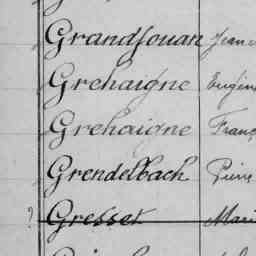 Grandjouan Jean
Grehaigne Eugèn
Grehaigne Franç
Grendelbach Pierre
? Gresset Mari